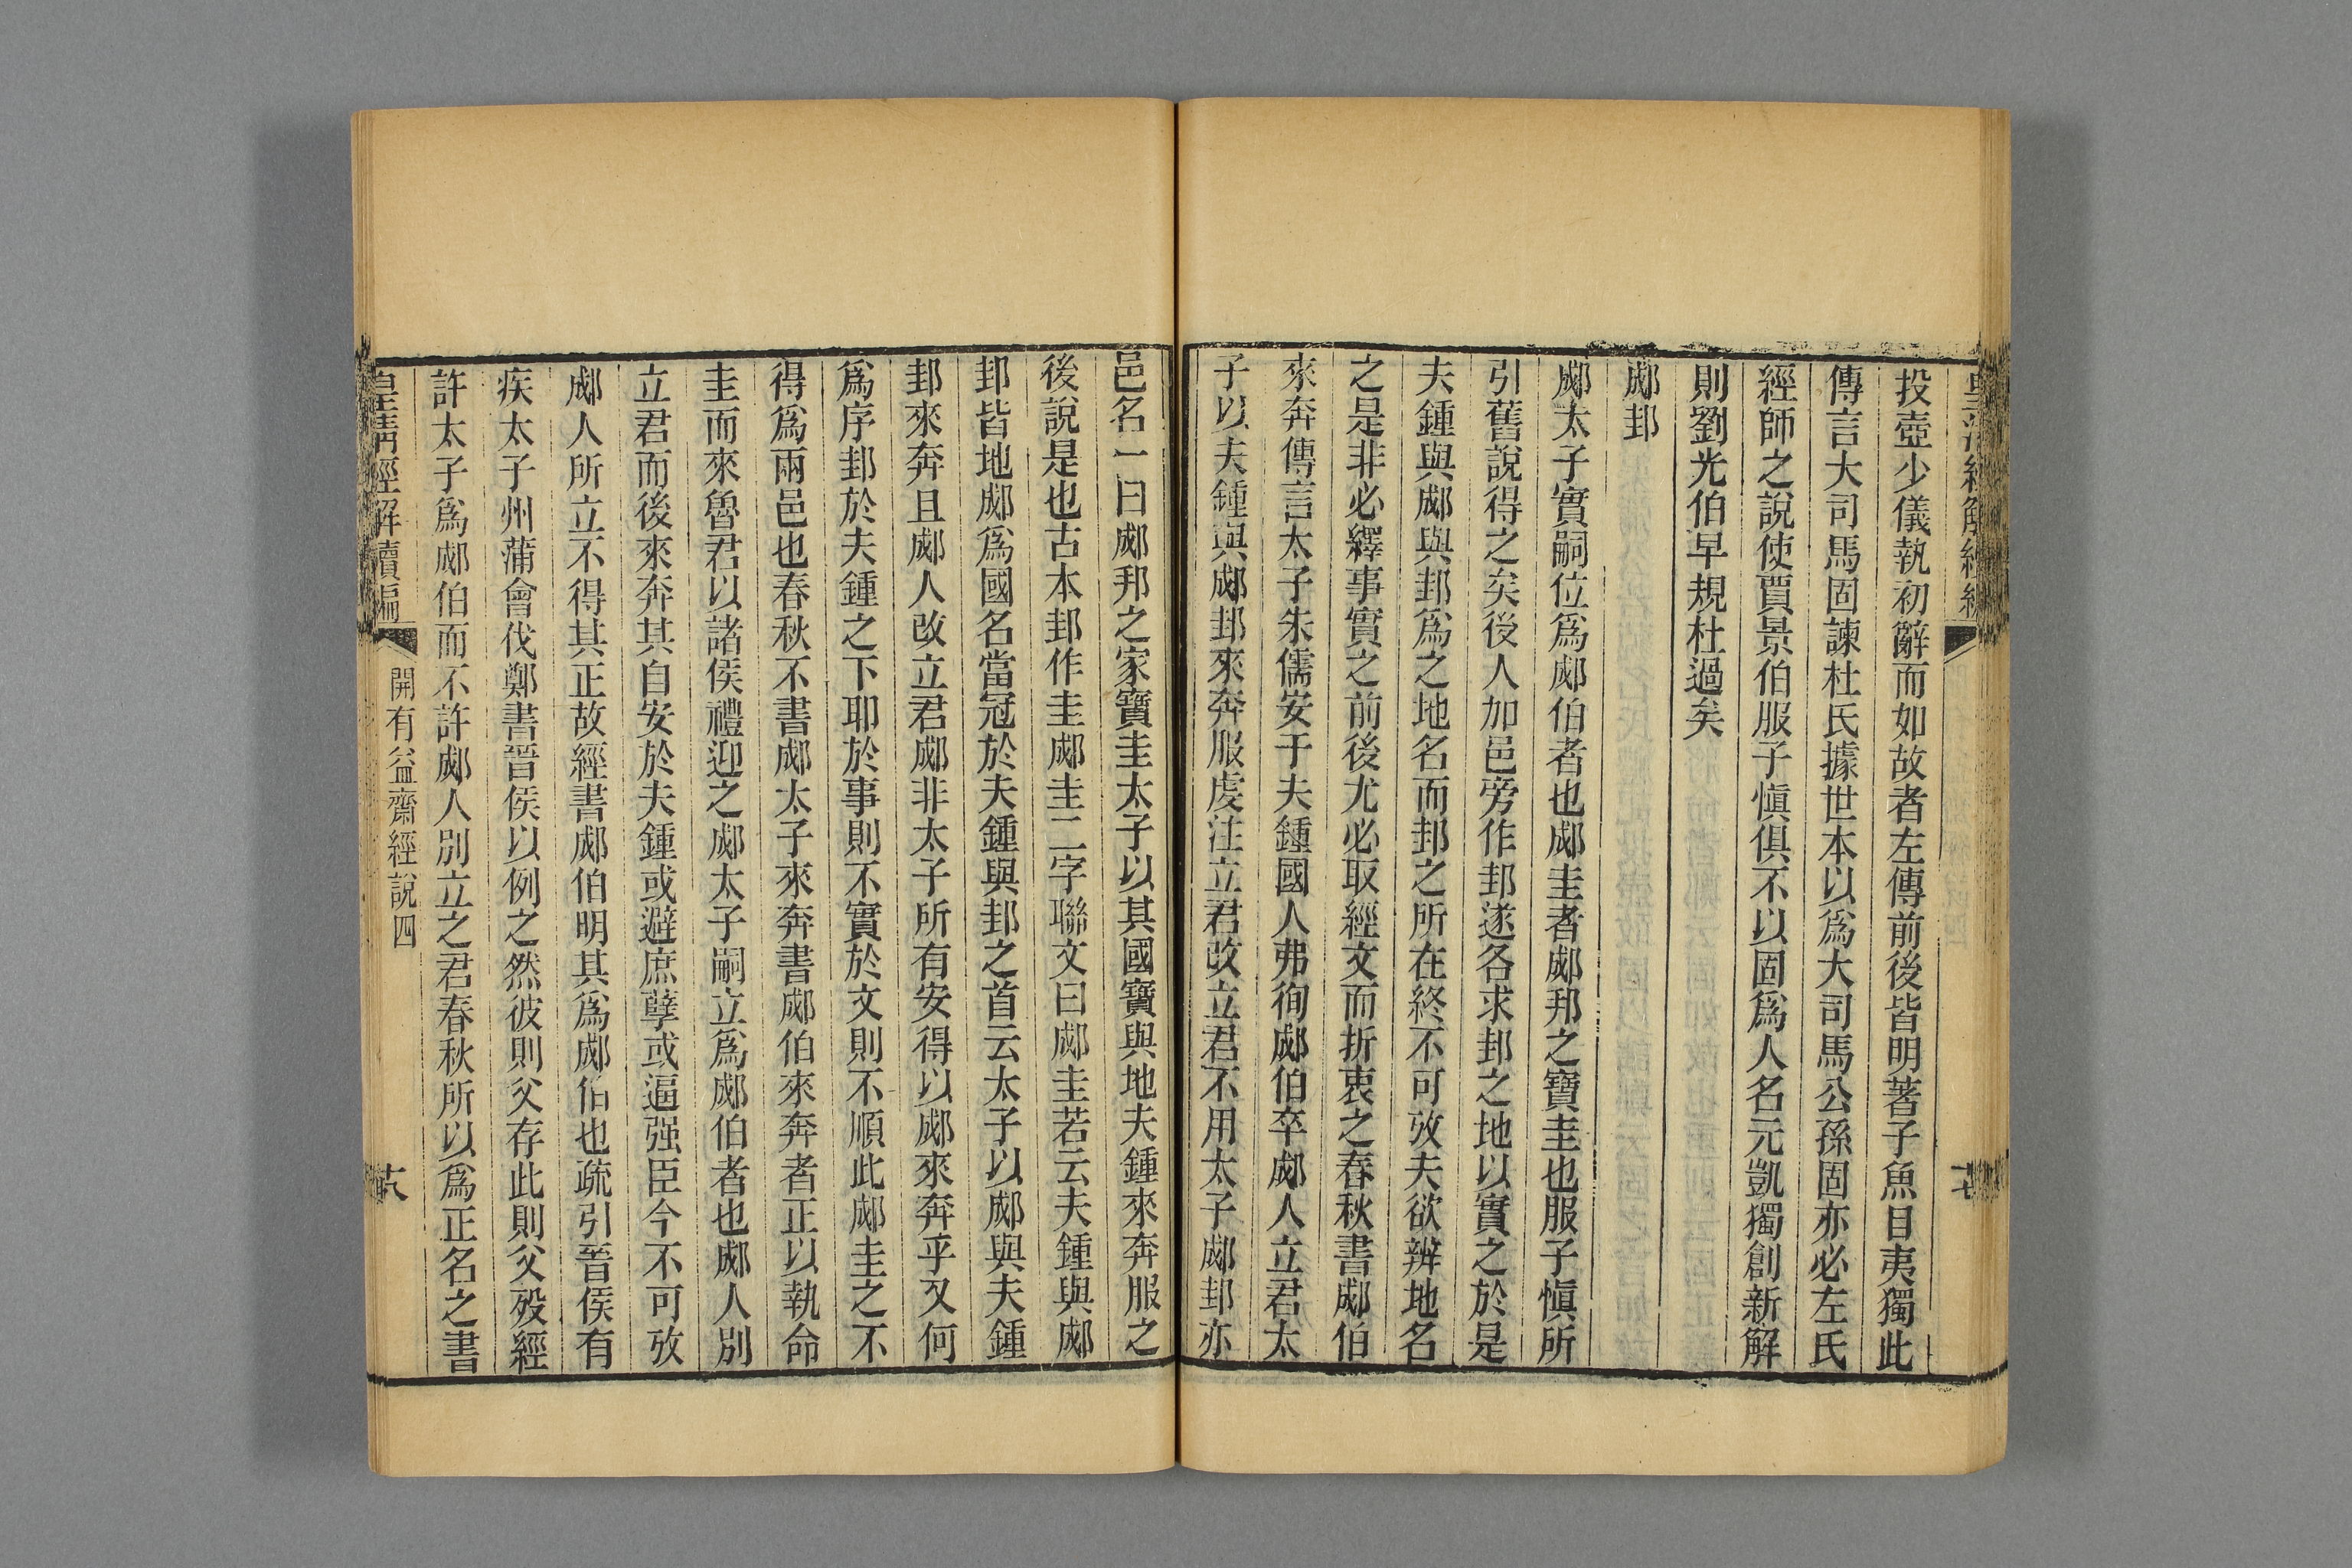 投壺少儀執初辭而如故者左傳前後皆明著子魚目夷獨此
傳言大司馬固諫杜氏據世本以爲大司馬公孫固亦必左氏
經師之說使賈景伯服子愼俱不以固爲人名元凱獨創新解
則劉光伯早規杜過矣
郕邽
郕太子實嗣位爲郕伯者也郕圭者郕邦之寶圭也服子愼所
引舊說得之矣後人加邑旁作邽遂各求邽之地以實之於是
夫鍾與郕與邽爲之地名而邽之所在終不可攷夫欲辨地名
之是非必繹事實之前後尤必取經文而折衷之春秋書郕伯
來奔傳言太子朱儒安于夫鍾國人弗徇郕伯卒郕人立君太
子以夫鍾與郕邽來奔服虔注立君改立君不用太子郕邽亦
邑名一曰郕邦之家寶圭太子以其國寶與地夫鍾來奔服之
後說是也古本邽作圭郕圭二字聯文曰郕圭若云夫鍾與郕
邽皆地郕爲國名當冠於夫鍾與邽之首云太子以郕與夫鍾
邽來奔且郕人改立君郕非太子所有安得以郕來奔乎又何
爲序邽於夫鍾之下耶於事則不實於文則不順此郕圭之不
得爲兩邑也春秋不書郕太子來奔書郕伯來奔者正以執命
圭而來魯君以諸侯禮迎之郕太子嗣立爲郕伯者也郕人別
立君而後來奔其自安於夫鍾或避庶孽或逼强臣今不可攷
郕人所立不得其正故經書郕伯明其爲郕伯也疏引晉侯有
疾太子州蒲會伐鄭書晉侯以例之然彼則父存此則父歿經
許太子爲郕伯而不許郕人別立之君春秋所以爲正名之書
皇清經解續編
開有益齋經說四
十八